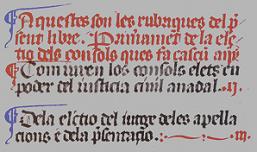 Aquestes son les rubriques del p̄
sent libre. Primamēt de la elec
tio dels consols ques fa cascū any
Com iuren los consols elets en
poder del iusticia ciuil anadal. .ij.
Dela electio del iutge deles apella
cions e dela p̄sentatio. .iij.